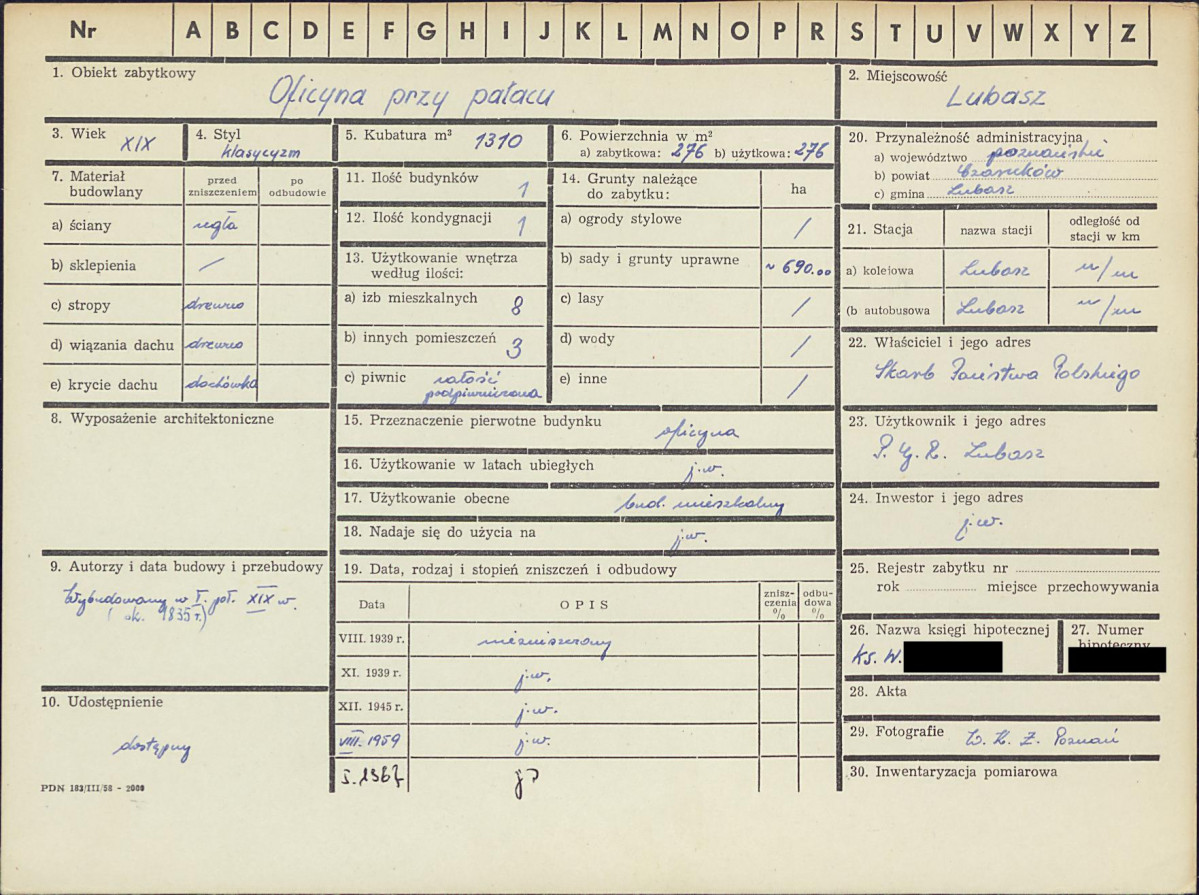 Nr A B C D E F G H I J K L M N O P R S T U V W X Y Z
1. Obiekt zabytkowy
Oficyna przy pałacu
2. Miejscowość
Lubasz
3. Wiek XIX
4. Styl
klasycyzm
5. Kubatura m³ 1310
6. Powierzchnia w m²
a) zabytkowa: 276 b) użytkowa: 276
20. Przynależność administracyjna
a) województwo poznański
b) powiat Czarnków
c) gmina Lubasz
7. Materiał budowlany
przed zniszczeniem
po odbudowie
a) ściany cegła
b) sklepienia /
c) stropy drewno
d) wiązania dachu drewno
e) krycie dachu dachówka
11. Ilość budynków 1
12. Ilość kondygnacji 1
13. Użytkowanie wnętrza
według ilości:
a) izb mieszkalnych 8
b) innych pomieszczeń 3
c) piwnic całość
podpiwniczona
14. Grunty należące
do zabytku:
ha
a) ogrody stylowe /
b) sady i grunty uprawne ~ 690.00
c) lasy /
d) wody /
e) inne /
21. Stacja
nazwa stacji
odległość od
stacji w km
a) kolejowa Lubasz m/m
(b autobusowa Lubasz m/m
22. Właściciel i jego adres
Skarb Państwa Polskiego
8. Wyposażenie architektoniczne
15. Przeznaczenie pierwotne budynku
oficyna
16. Użytkowanie w latach ubiegłych j.w.
17. Użytkowanie obecne bud. mieszkalny
18. Nadaje się do użycia na j.w.
23. Użytkownik i jego adres
P. G. R. Lubasz
24. Inwestor i jego adres
j.w.
9. Autorzy i data budowy i przebudowy
Wybudowany w I. poł. XIX w.
(ok. 1835 r.)
19. Data, rodzaj i stopień zniszczeń i odbudowy
Data OPIS
znisz-
czenia
%
odbu-
dowa
%
VIII. 1939 r. niezniszczony
XI. 1939 r. j.w.
XII. 1945 r. j.w.
VIII. 1959 j.w.
I. 1967
25. Rejestr zabytku nr
rok miejsce przechowywania
26. Nazwa księgi hipotecznej
Ks. W.
27. Numer
hipoteczny
28. Akta
29. Fotografie W. K. Z. Poznań
30. Inwentaryzacja pomiarowa
10. Udostępnienie
dostępny
PDN 183/III/58 - 2000